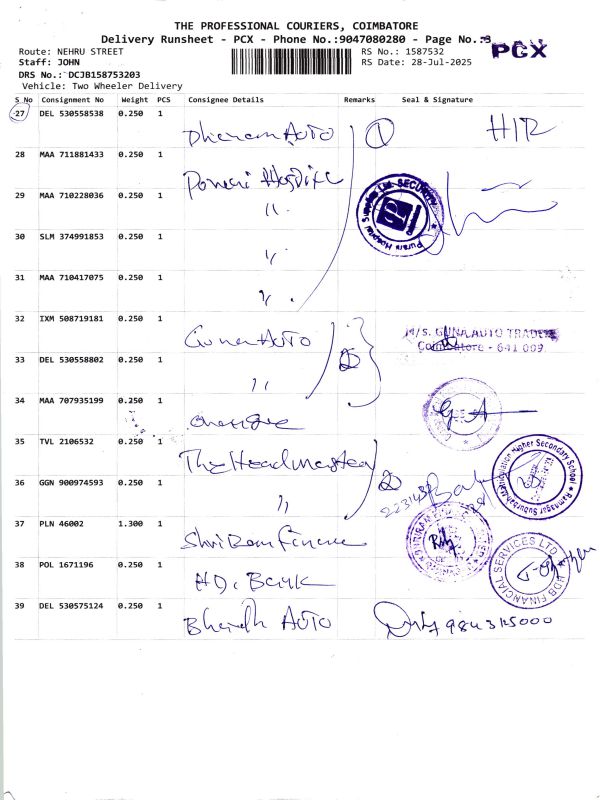 THE PROFESSIONAL COURIERS, COIMBATORE
Delivery Runsheet - PCX - Phone No.:9047080280 - Page No.:3
PCX
Route: NEHRU STREET
RS No.: 1587532
Staff: JOHN
RS Date: 28-Jul-2025
DRS No.: DCJB158753203
Vehicle: Two Wheeler Delivery
S No Consignment No Weight PCS Consignee Details Remarks Seal & Signature
27 DEL 530558538 0.250 1 Dharam AUTO 1
28 MAA 711881433 0.250 1
29 MAA 710228036 0.250 1 "
SECURITY
30 SLM 374991853 0.250 1 "
31 MAA 710417075 0.250 1 "
32 IXM 508719181 0.250 1 Guna AUTO
M/S. GUNA AUTO TRADERS
Coimbatore - 641 009.
33 DEL 530558802 0.250 1 "
34 MAA 707935199 0.250 1
35 TVL 2106532 0.250 1 The Head Master
Ramnagar Suburban Higher Secondary School
36 GGN 900974593 0.250 1 "
37 PLN 46002 1.300 1 Shri Ram Finance
38 POL 1671196 0.250 1 HD. Bank
HDB FINANCIAL SERVICES LTD
39 DEL 530575124 0.250 1 Bharath AUTO